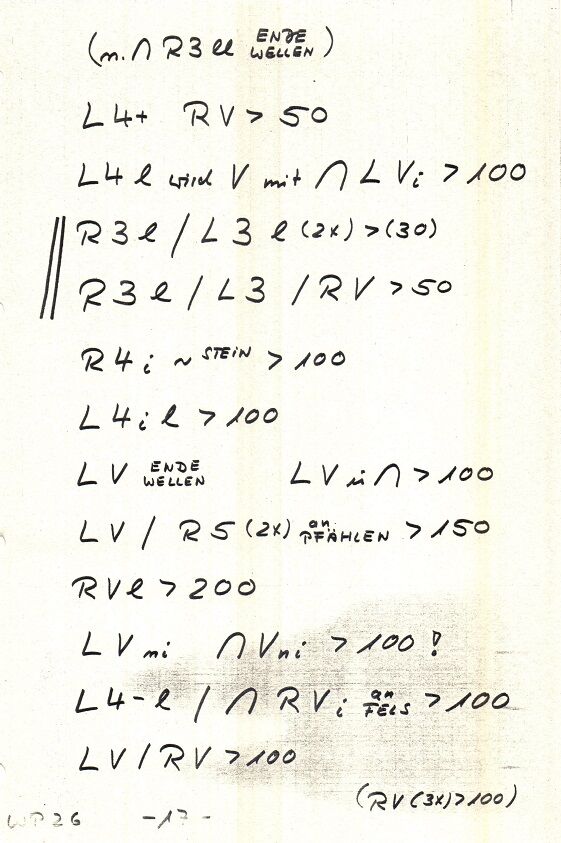 (m. ∩ R3ll ENDE WELLEN)
L4+ RV > 50
L4l wird V mit ∩ L Vi > 100
R3l / L3 l (2x) > (30)
R3l / L3 / RV > 50
R4i ~ STEIN > 100
L4il > 100
LV ENDE WELLEN LV in ∩ > 100
LV / R5 (2x) an PFÄHLEN > 150
RVl > 200
LV mi ∩ Vni > 100 !
L4-l / ∩ RVi an FELS > 100
LV / RV > 100
(RV (3x) > 100)
WP26 -17-